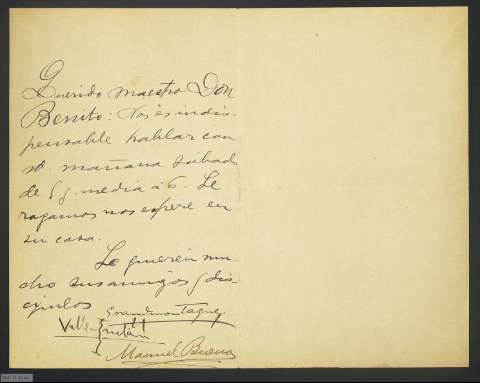 Querido maestro Don
Benito: Nos es indis-
pensable hablar con
Vd. mañana sábado
de 5 y media á 6. Le
rogamos nos espere en
su casa.
Le quieren mu-
cho sus amigos y dis-
cípulos
Grandmontagne
Valle-Inclán
Manuel Bueno